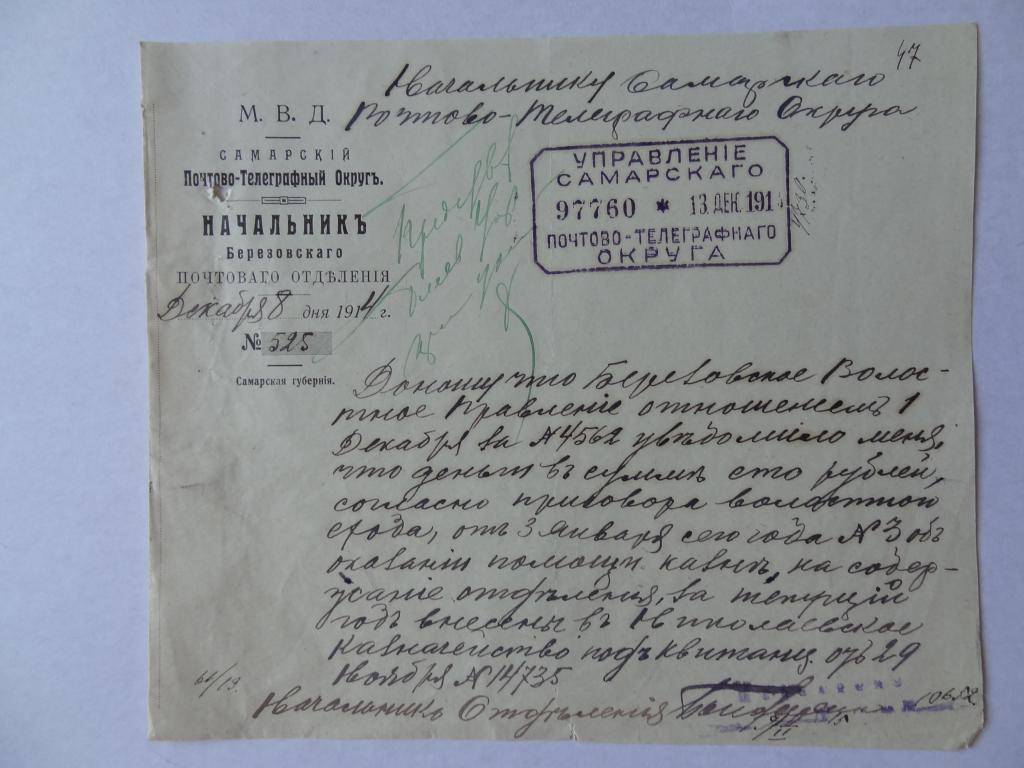 47
Начальнику Самарскаго
Почтово-Телеграфнаго Округа
М. В. Д.
САМАРСКІЙ
Почтово-Телеграфный Округъ.
НАЧАЛЬНИКЪ
Березовскаго
ПОЧТОВАГО ОТДѢЛЕНІЯ
Декабря 8 дня 1914 г.
№ 525
Самарская губернія.
УПРАВЛЕНІЕ
САМАРСКАГО
97760 * 13. ДЕК. 191
ПОЧТОВО-ТЕЛЕГРАФНАГО
ОКРУГА
Доношу что Березовское Волос-
тное Правленіе отношеніемъ 1
Декабря за № 4562 увѣдомило меня,
что деньги въ суммѣ сто рублей,
согласно приговора волостного
схода, отъ 3 января сего года № 3 объ
оказаніи помощи казнѣ, на содер-
жаніе отдѣленія, за текущій
годъ внесены въ Николаевское
казначейство подъ квитанц. отъ 29
Ноября № 14735
Начальникъ Отдѣленія